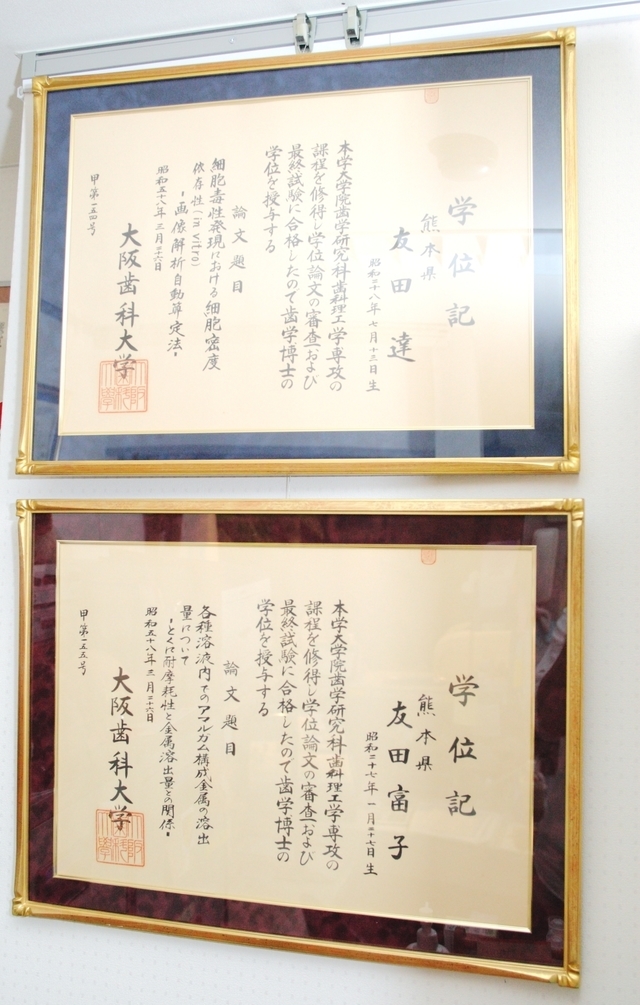 学位記
熊本県
友田達
昭和二十八年七月十三日生
本学大学院歯学研究科歯科理工学専攻の
課程を修得し学位論文の審査および
最終試験に合格したので歯学博士の
学位を授与する
論文題目
細胞毒性発現における細胞密度
依存性(in vitro)
-画像解析自動算定法-
昭和五十八年三月二十六日
大阪歯科大学
甲第一五四号
学位記
熊本県
友田富子
昭和二十七年一月二十七日生
本学大学院歯学研究科歯科理工学専攻の
課程を修得し学位論文の審査および
最終試験に合格したので歯学博士の
学位を授与する
論文題目
各種溶液内でのアマルガム構成金属の溶出
量について
-とくに耐摩耗性と金属溶出量との関係-
昭和五十八年三月二十六日
大阪歯科大学
甲第一五五号